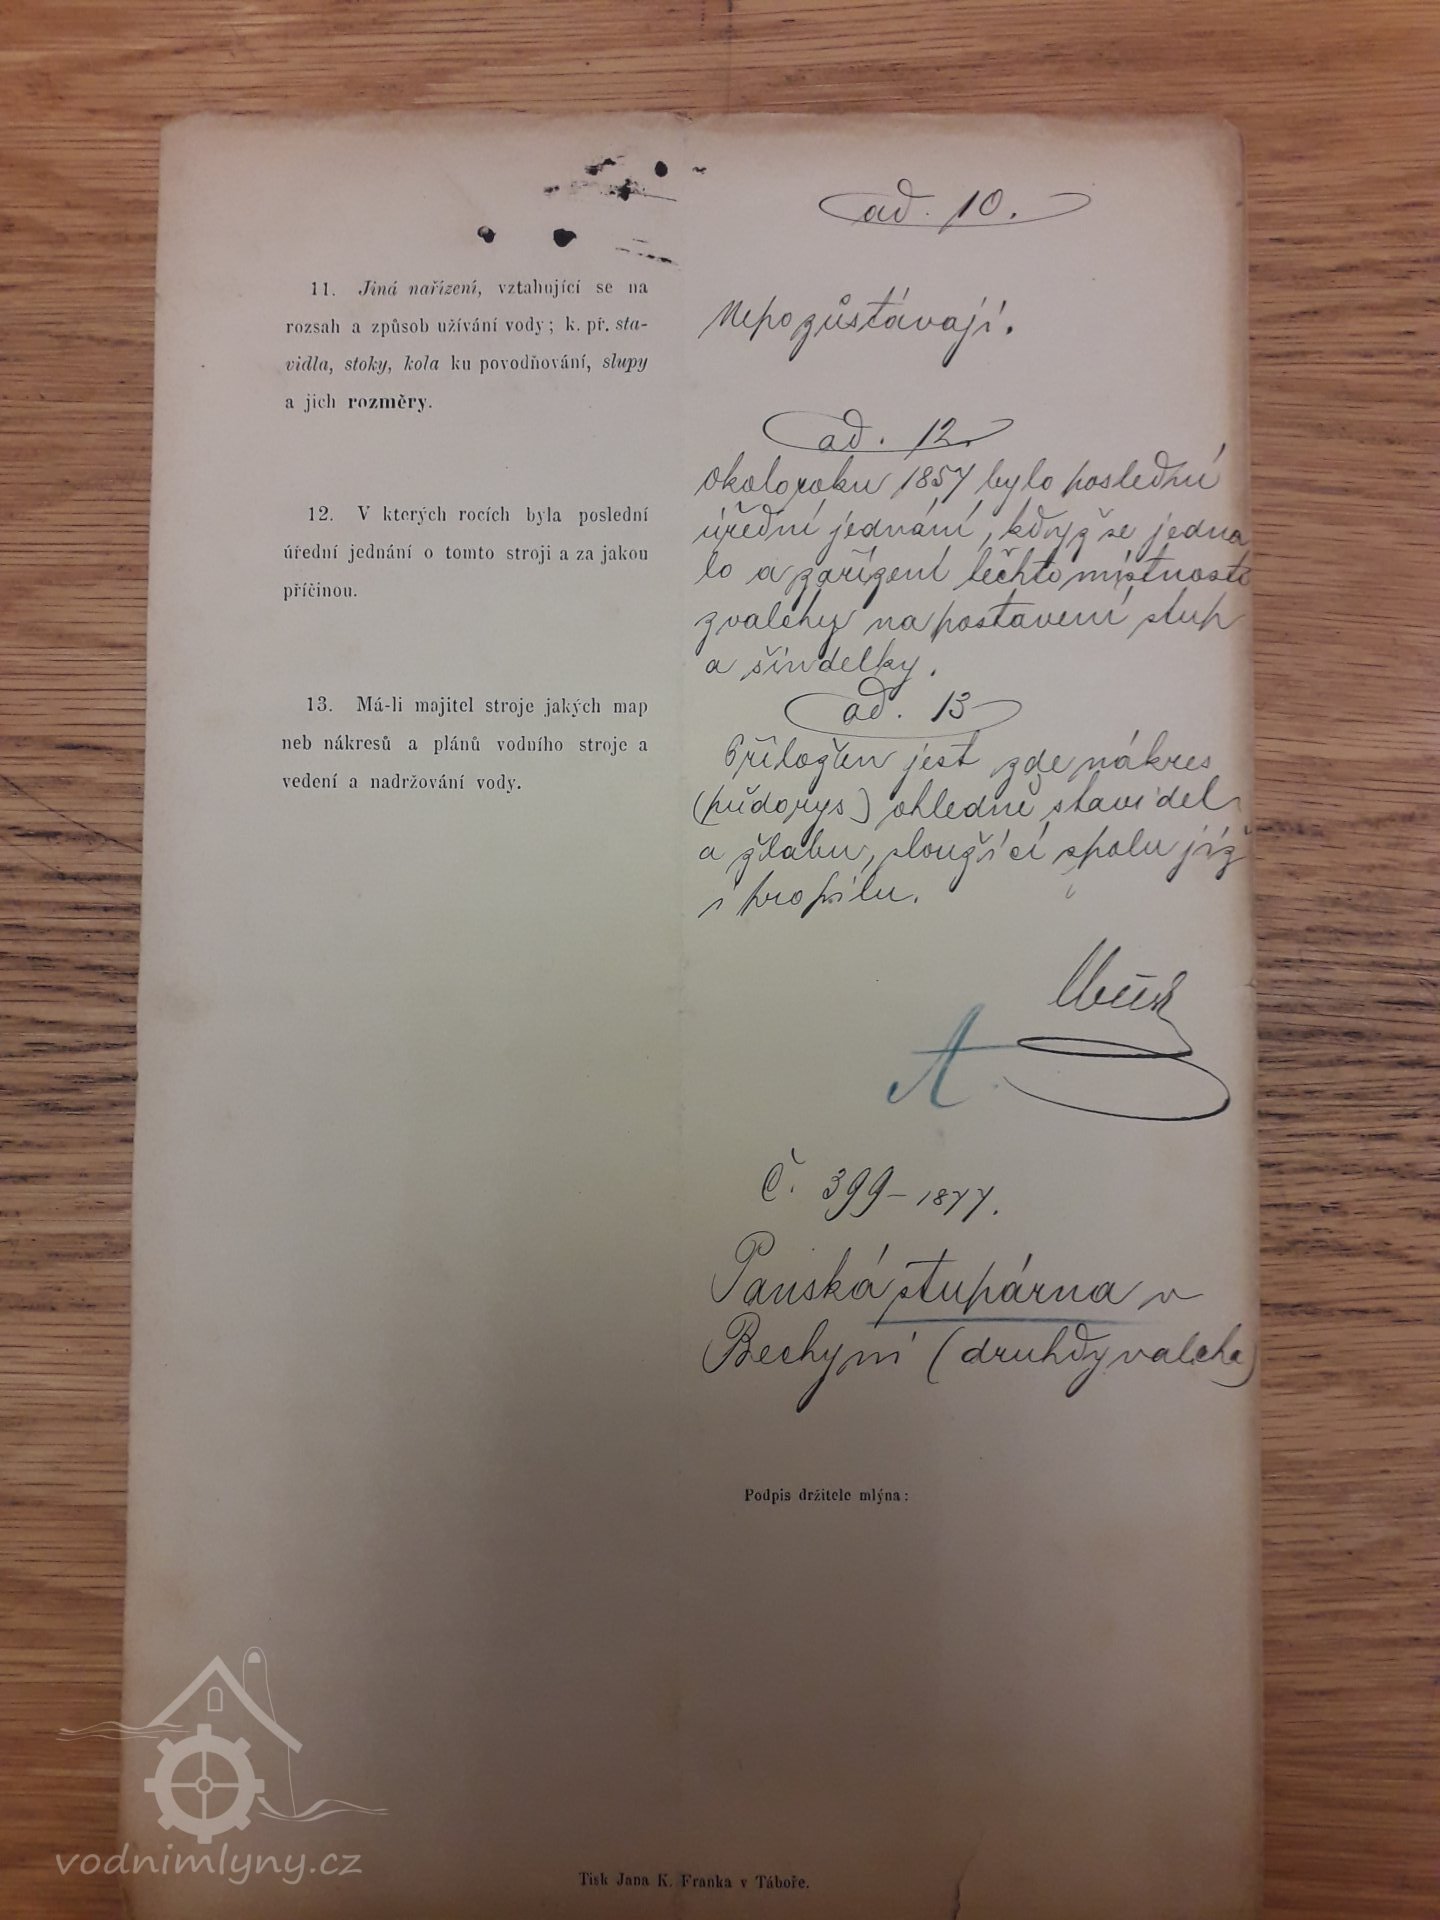 ad. 10.
11. Jiná nařízení, vztahující se na
rozsah a způsob užívání vody; k. př. sta-
vidla, stoky, kola ku povodňování, slupy
a jich rozměry.
Nepozůstávají.
ad. 12.
12. V kterých rocích byla poslední
úřední jednání o tomto stroji a za jakou
příčinou.
Okolo roku 1857 bylo poslední
úřední jednání, když se jedna
lo o zařízení těchto místností
z valchy na postavení stup
a šindelky.
ad. 13
13. Má-li majitel stroje jakých map
neb nákresů a plánů vodního stroje a
vedení a nadržování vody.
Přiložen jest zde nákres
(půdorys) ohledně stavidel
a žlabu, sloužící spolu již
i profilu.
A.
Č. 399-1877.
Panská stupárna v
Bechyni (druhdy valcha)
Podpis držitele mlýna:
vodnimlyny.cz
Tisk Jana K. Franka v Táboře.